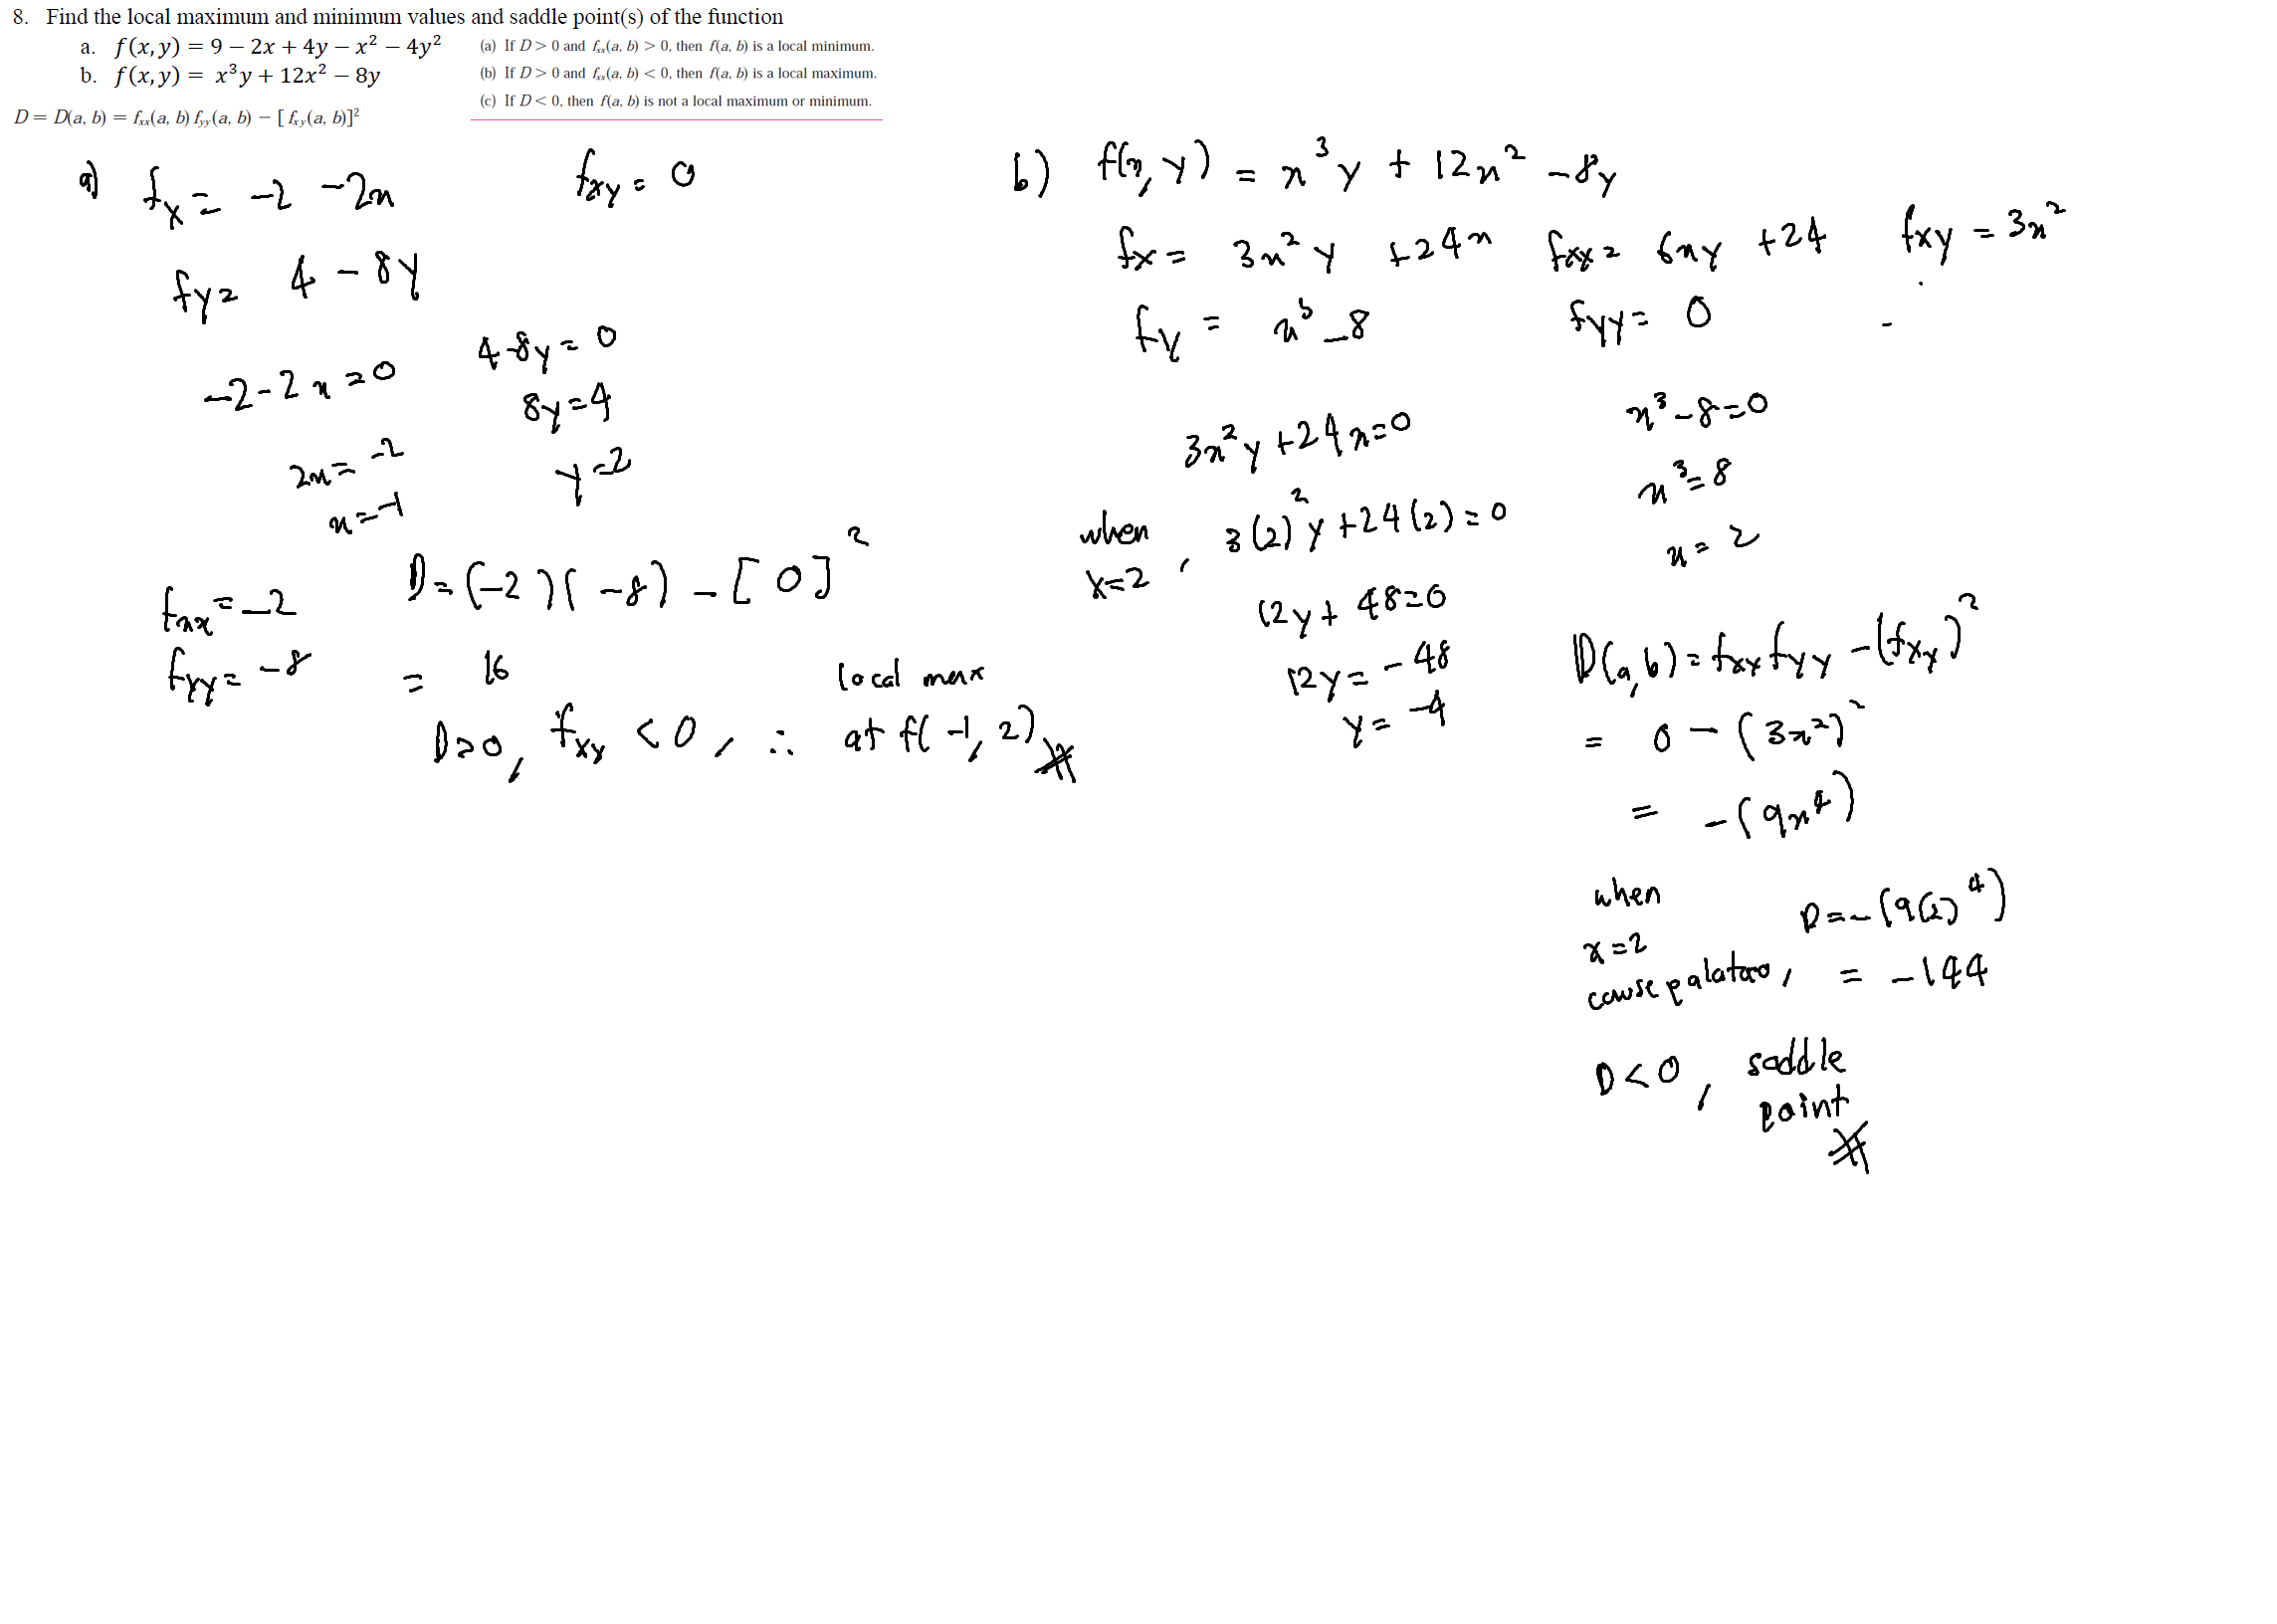 8. Find the local maximum and minimum values and saddle point(s) of the function
a. f(x,y) = 9 − 2x + 4y − x² − 4y²
b. f(x,y) = x³y + 12x² − 8y
(a) If D > 0 and fₓₓ(a, b) > 0, then f(a, b) is a local minimum.
(b) If D > 0 and fₓₓ(a, b) < 0, then f(a, b) is a local maximum.
(c) If D < 0, then f(a, b) is not a local maximum or minimum.
D = D(a, b) = fxx(a, b) fyy(a, b) − [fxy(a, b)]²
a) fx = -2 -2x
fxy = 0
fy = 4 - 8y
-2-2x=0
2x = -2
x=-1
4-8y=0
8y=4
y=2
fxx=-2
fyy=-8
D=(-2)(-8)-[0]²
= 16
D>0, fxy <0, ∴ local max
at f(-1, 2)
b) f(x,y) = x³y + 12x² -8y
fx = 3x²y +24x
fxx = 6xy +24
fxy = 3x²
fy = x³-8
fyy = 0
3x²y+24x=0
when
x=2 , 3(2)²y+24(2)=0
12y+48=0
12y=-48
y=-4
x³-8=0
x³=8
x=2
D(a,b)=fxxfyy-(fxy)²
= 0-(3x²)²
= -(9x⁴)
when
x=2
D=-(9(2)⁴)
= -144
D<0, saddle
point